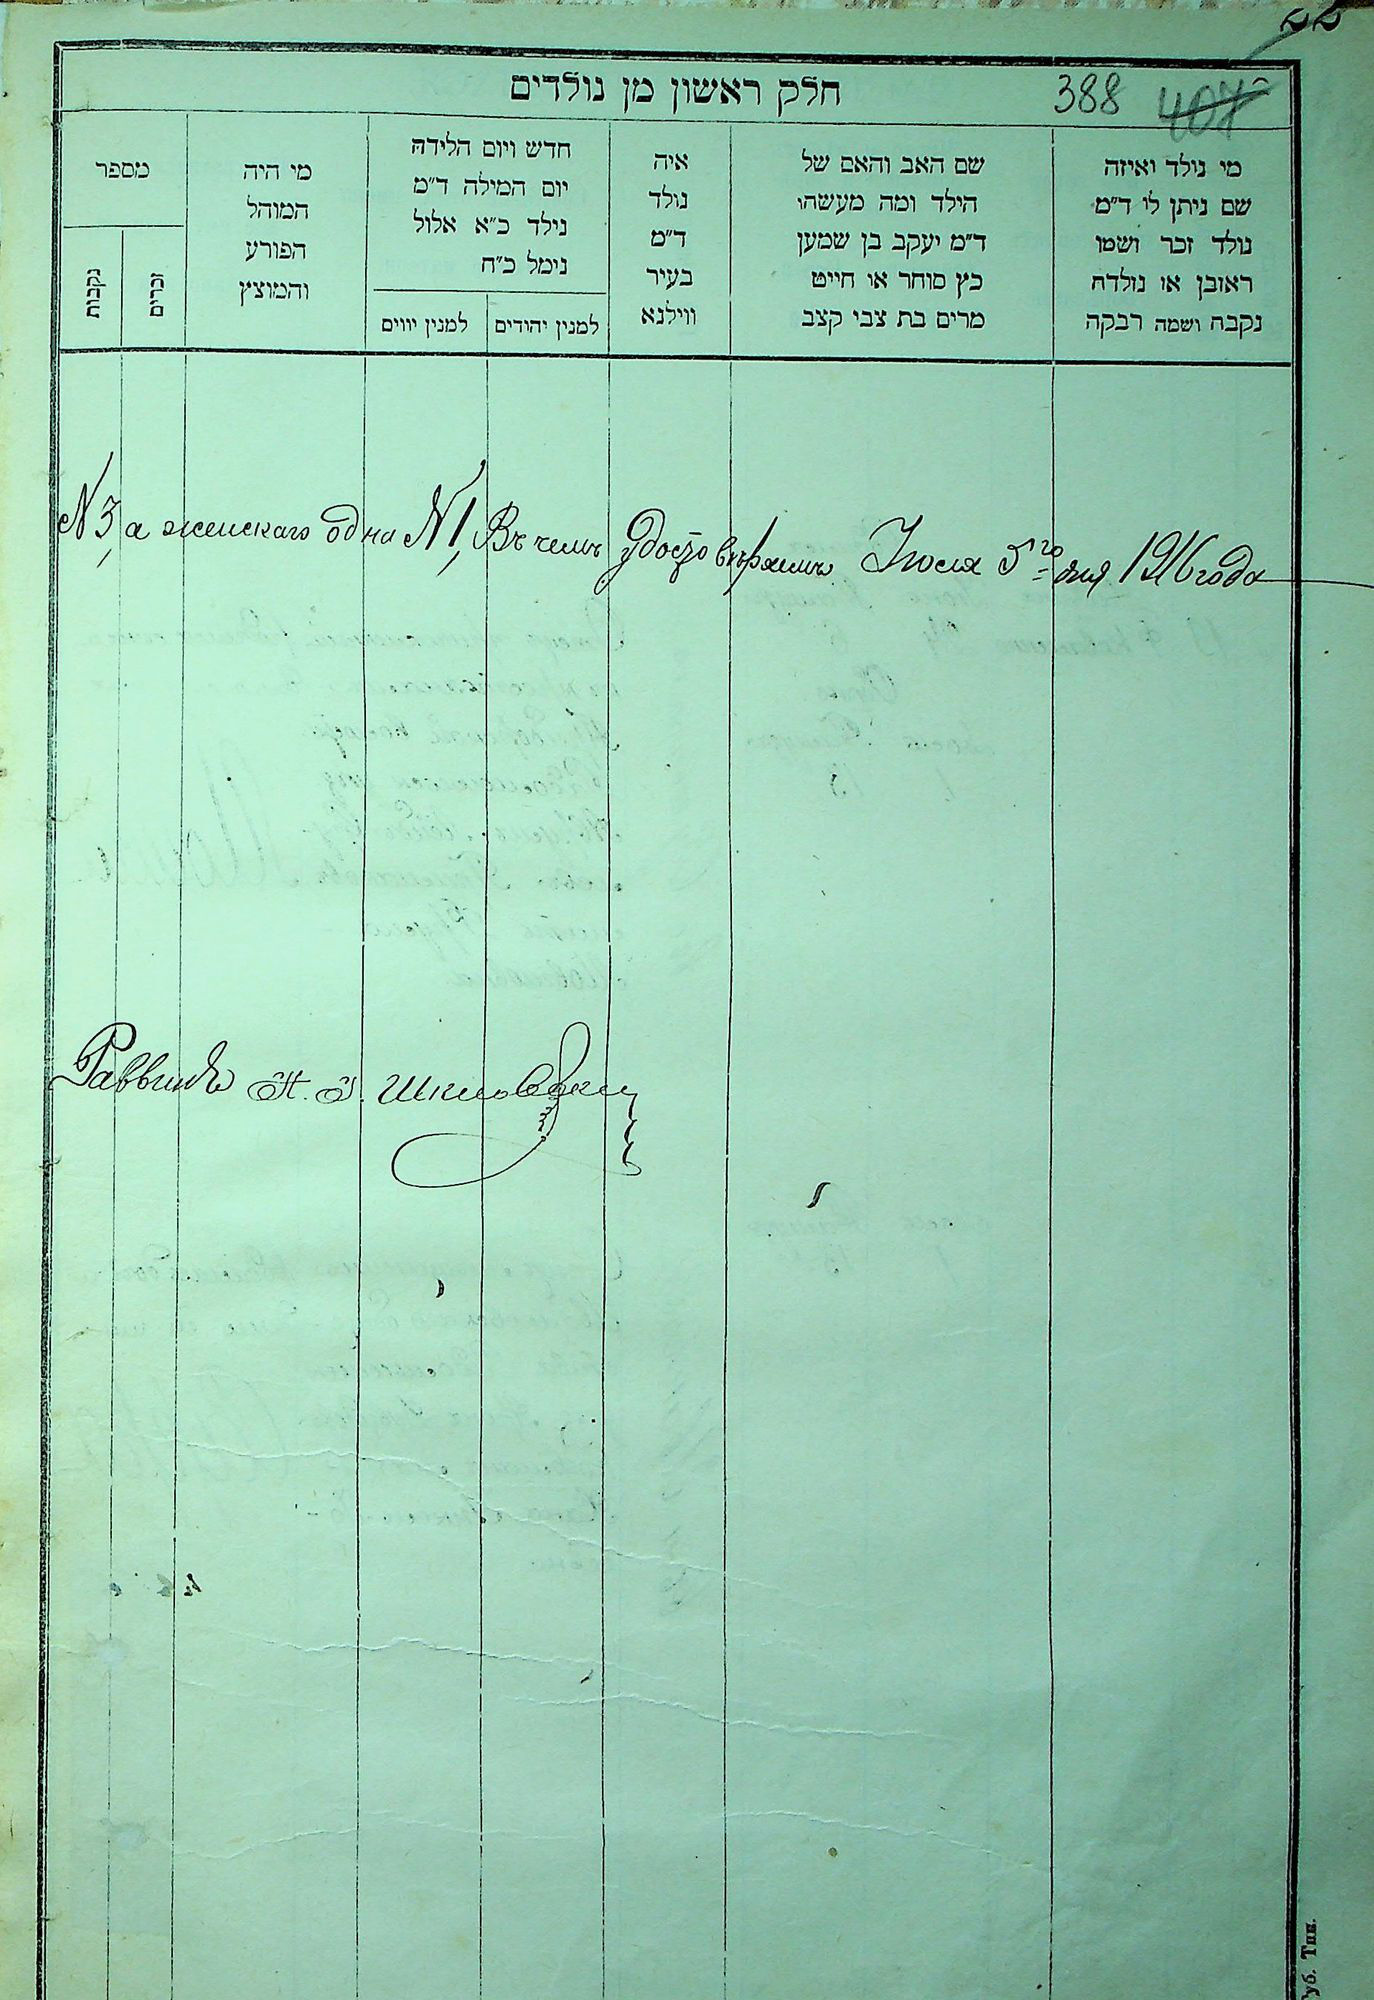 22
חלק ראשון מן נולדים
388 407
מי נולד ואיזה
שם ניתן לו ד"מ
נולד זכר ושמו
ראובן או נולדה
נקבה ושמה רבקה
שם האב והאם של
הילד ומה מעשהו
ד"מ יעקב בן שמען
כץ סוחר או חייט
מרים בת צבי קצב
איה
נולד
ד"מ
בעיר
ווילנא
חדש ויום הלידה
יום המילה ד"מ
נילד כ"א אלול
נימל כ"ח
למנין יהודים
למנין יווים
מי היה
המוהל
הפורע
והמוצץ
מספר
זכרים
נקבות
№ 3, а женскаго одна № 1, Въ чемъ удостовѣряемъ Июля 5го дня 1916 года
Раввинъ
Губ. Тип.